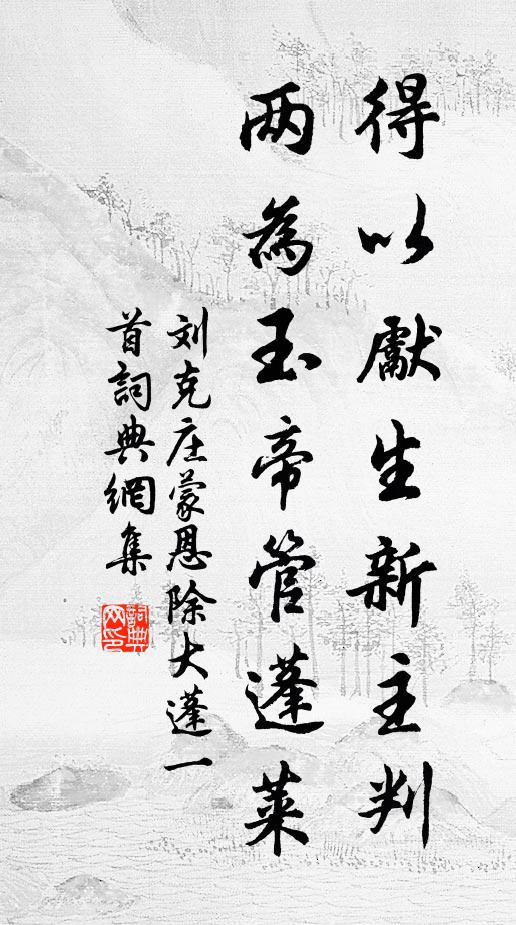 得以獻生新主判
两為玉帝管蓬莱
刘克庄蒙恩除大蓬一
首詞典網集
詞典网印